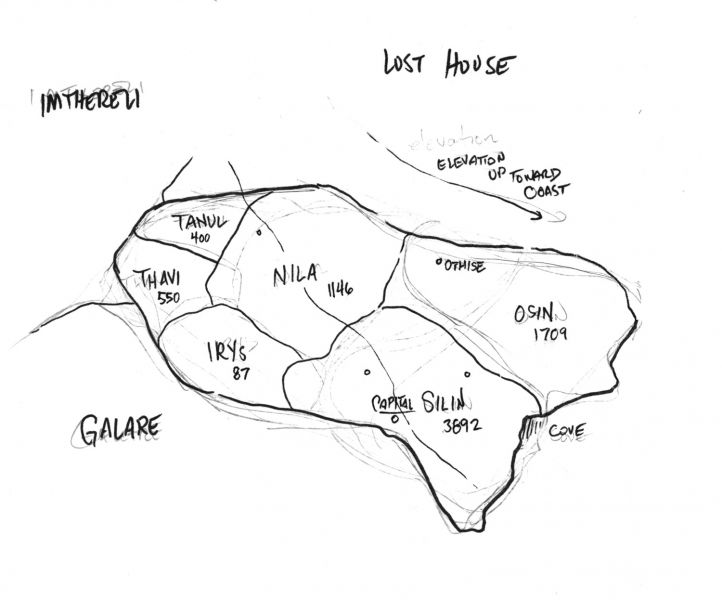 LOST HOUSE
IMTHERELI
elevation
ELEVATION
UP TOWARD
COAST
TANUL
400
THAVI
550
NILA
1146
OTHISE
OSIN
1709
IRYS
87
CAPITAL
SILIN
3892
COVE
GALARE